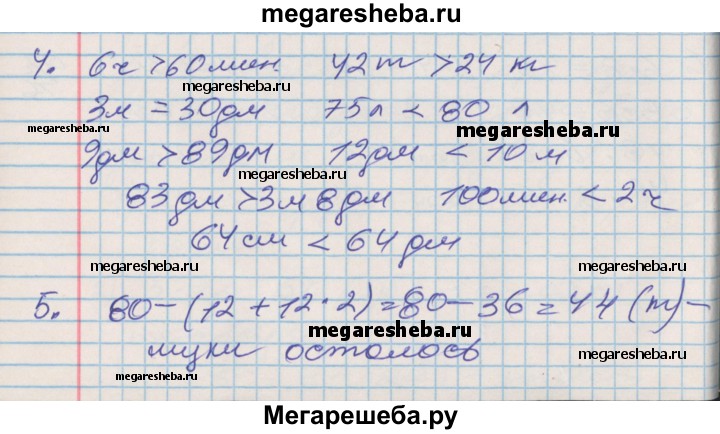 megaresheba.ru
4. 6ч > 60мин. 42т > 24 кг
megaresheba.ru
3м = 30дм 75л < 80 л
megaresheba.ru megaresheba.ru
9дм > 89дм 12дм < 10 м
megaresheba.ru
83дм > 3м 8дм 100мин. < 2ч
64см < 64 дм
megaresheba.ru megaresheba.ru
5. 80-(12+12·2)=80-36=44 (т)-
megaresheba.ru
муки осталось
megaresheba.ru megaresheba.ru
Мегарешеба.ру